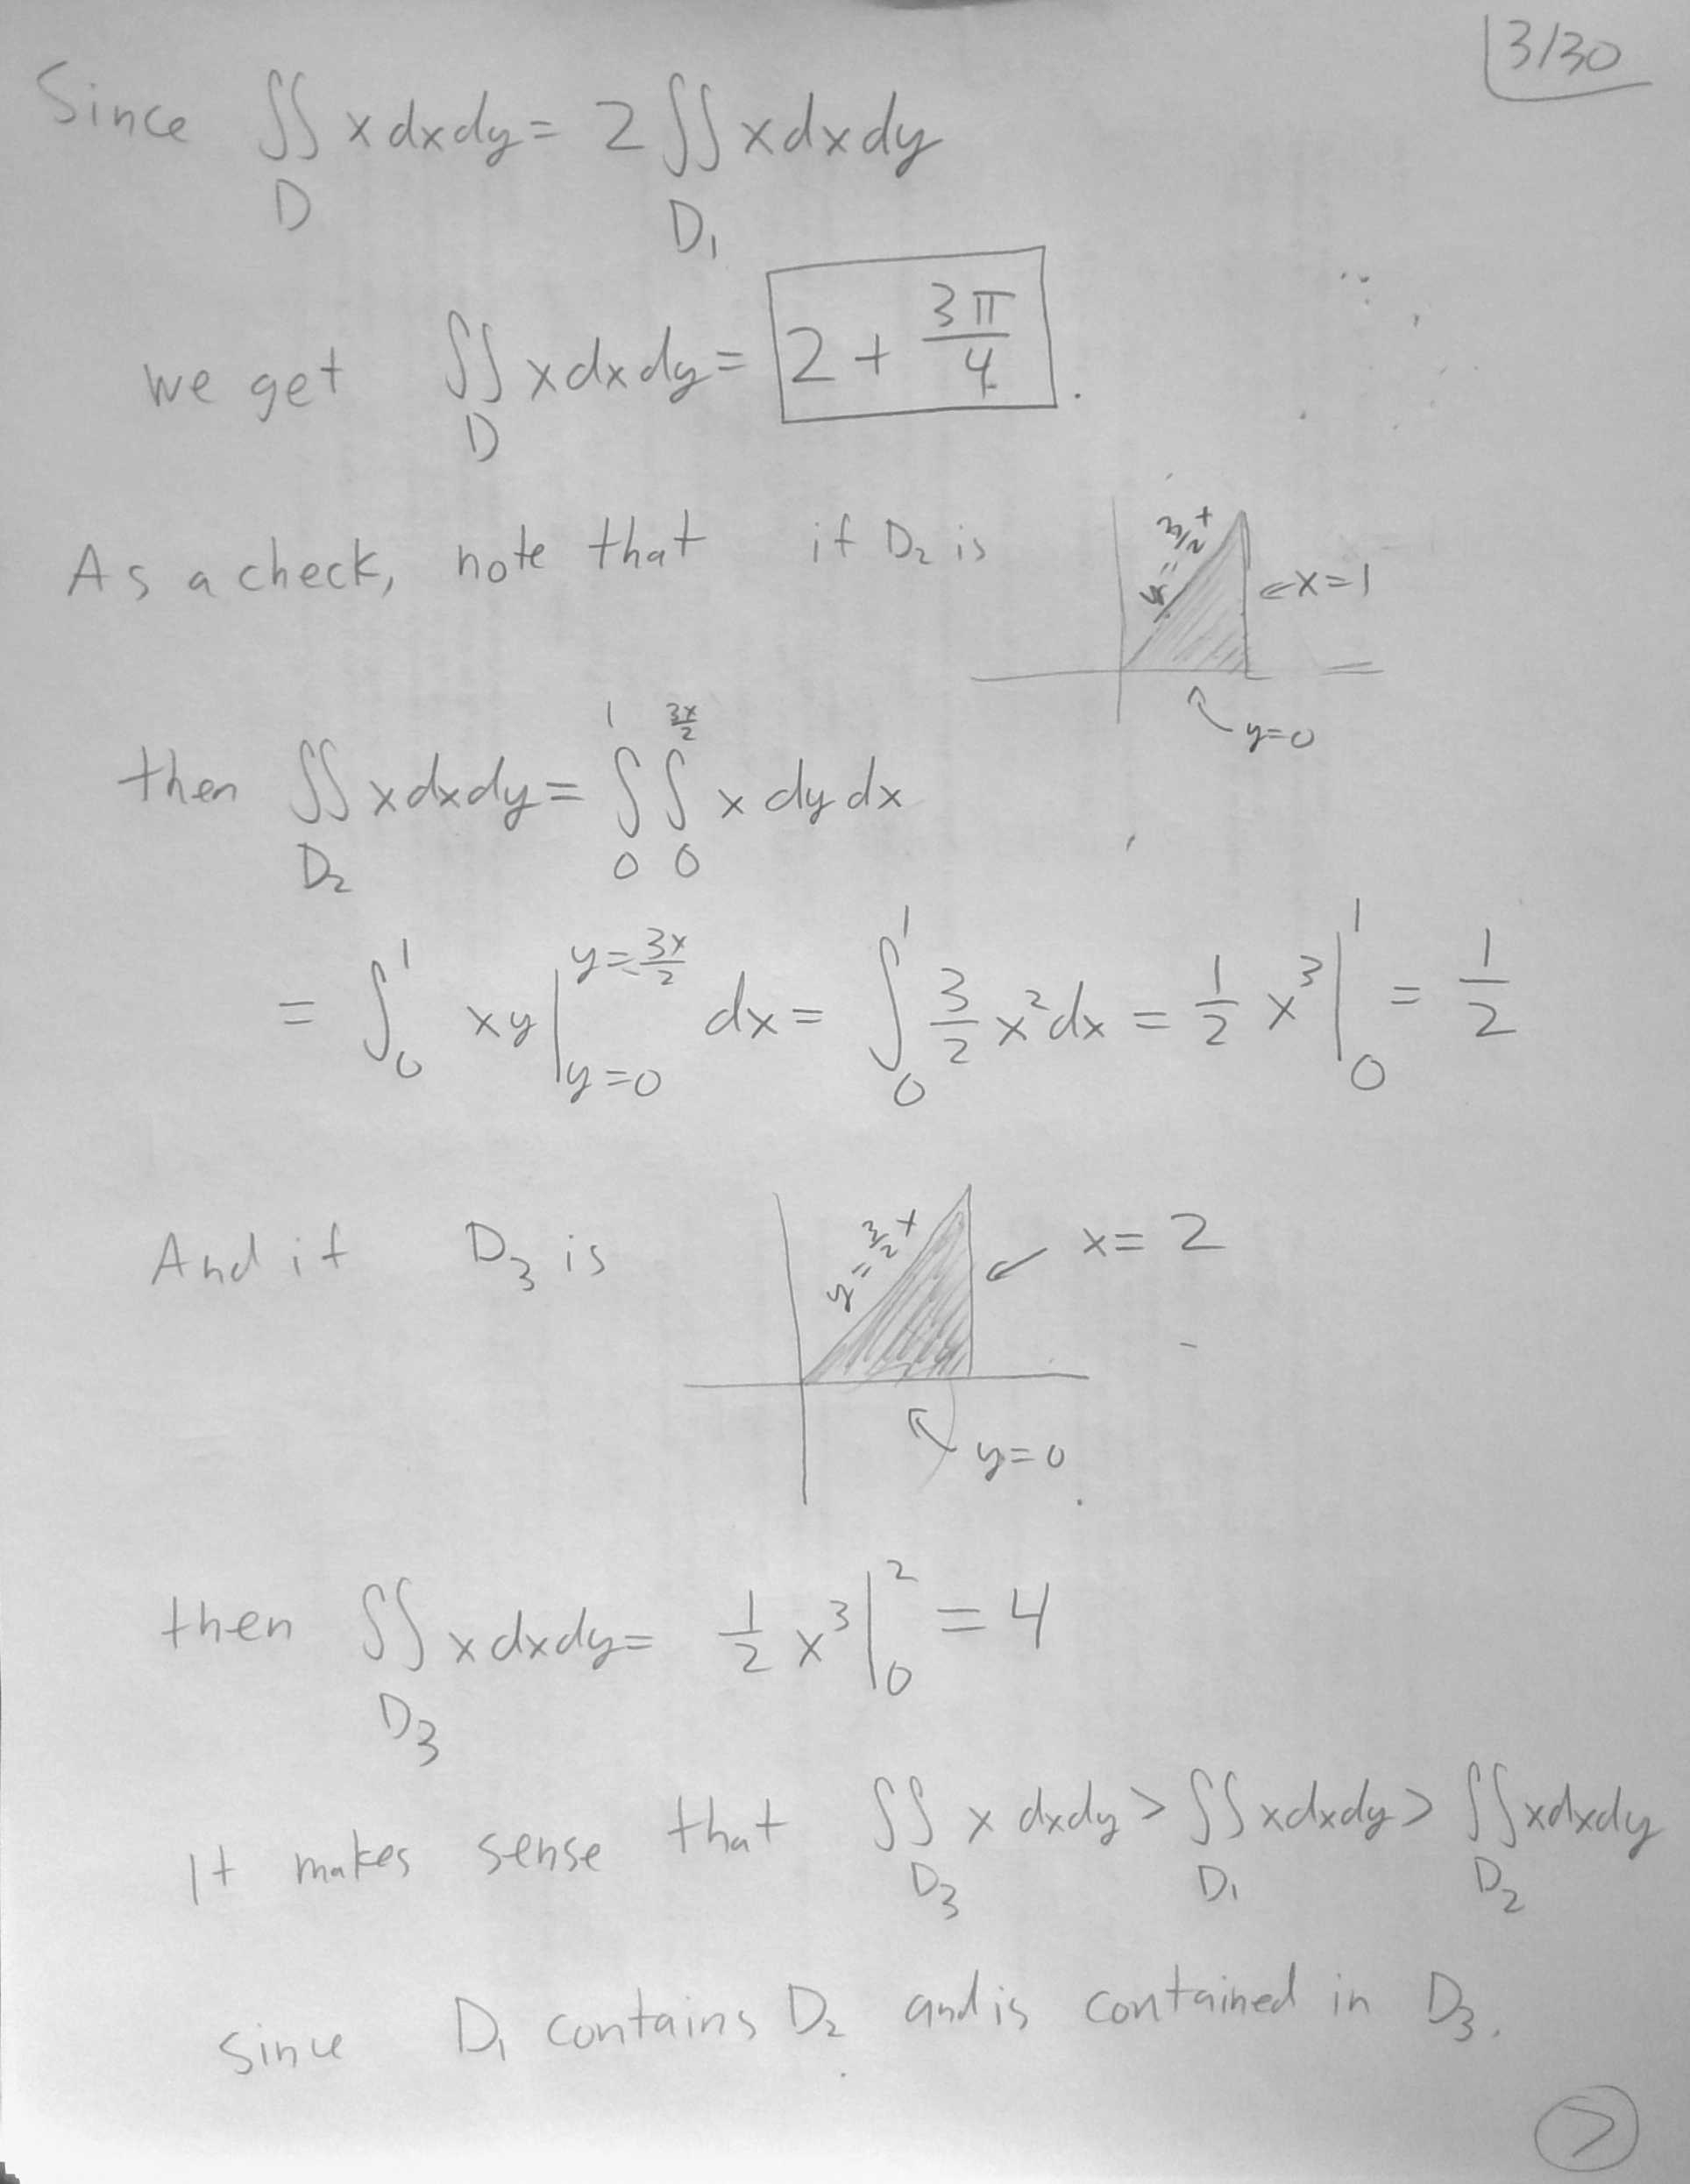 3/30
Since ∬_D x dx dy = 2 ∬_{D₁} x dx dy
we get ∬_D x dx dy = 2 + 3π/4 .
As a check, note that if D₂ is
y = 3/2 x
← x = 1
y = 0
then ∬_{D₂} x dx dy = ∫_0^1 ∫_0^{3x/2} x dy dx
= ∫_0^1 xy |_{y=0}^{y=3x/2} dx = ∫_0^1 3/2 x² dx = 1/2 x³ |_0^1 = 1/2
And if D₃ is
y = 3/2 x
x = 2
y = 0
then ∬_{D₃} x dx dy = 1/2 x³ |_0^2 = 4
It makes sense that ∬_{D₃} x dx dy > ∬_{D₁} x dx dy > ∬_{D₂} x dx dy
since D₁ contains D₂ and is contained in D₃.
7